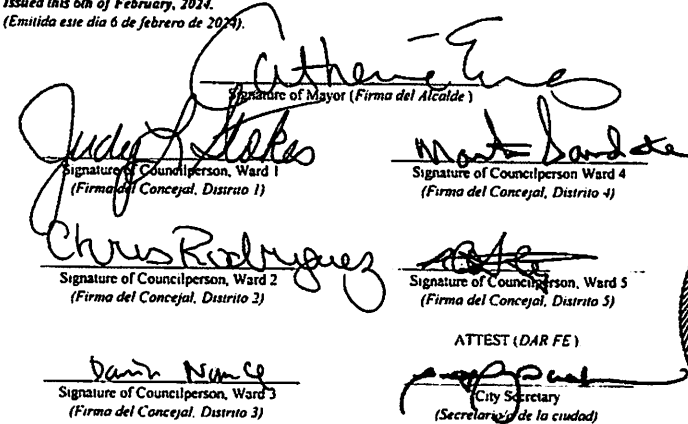 Issued this 6th of February, 2024.
(Emitida este día 6 de febrero de 2024).
Catherine
Signature of Mayor (Firma del Alcalde )
Judy L Stokes
Signature of Councilperson, Ward 1
(Firma del Concejal, Distrito 1)
Signature of Councilperson Ward 4
(Firma del Concejal, Distrito 4)
Chris Rodriguez
Signature of Councilperson, Ward 2
(Firma del Concejal, Distrito 2)
Signature of Councilperson, Ward 5
(Firma del Concejal, Distrito 5)
ATTEST (DAR FE )
Signature of Councilperson, Ward 3
(Firma del Concejal, Distrito 3)
City Secretary
(Secretario/a de la ciudad)